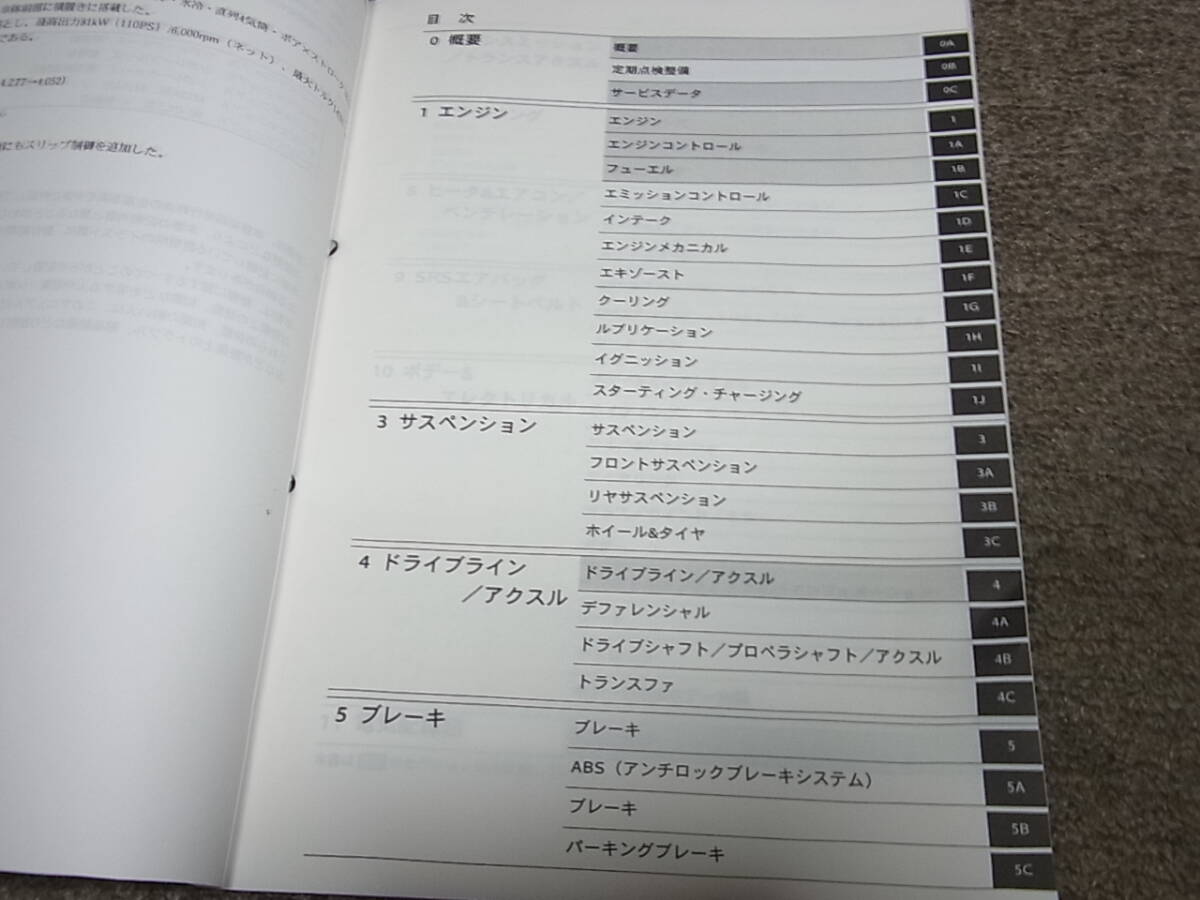 とし、最高出力81kW（110PS）/6,000rpm（ネット）、最大トルク
である。
4.277→4.052）
にもスリップ制御を追加した。
目 次
0 概要
概要 0A
定期点検整備 0B
サービスデータ 0C
1 エンジン
エンジン 1
エンジンコントロール 1A
フューエル 1B
エミッションコントロール 1C
インテーク 1D
エンジンメカニカル 1E
エキゾースト 1F
クーリング 1G
ルブリケーション 1H
イグニッション 1I
スターティング・チャージング 1J
3 サスペンション
サスペンション 3
フロントサスペンション 3A
リヤサスペンション 3B
ホイール&タイヤ 3C
4 ドライブライン
／アクスル
ドライブライン／アクスル 4
デファレンシャル 4A
ドライブシャフト／プロペラシャフト／アクスル 4B
トランスファ 4C
5 ブレーキ
ブレーキ 5
ABS（アンチロックブレーキシステム） 5A
ブレーキ 5B
パーキングブレーキ 5C